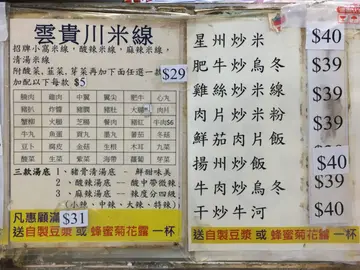 雲貴川米線
招牌小窩米線，酸辣米線，麻辣米線，
清湯米線
附酸菜，韮菜，芽菜再加下面任選一款 $29
加配以下每款 $5
腩肉 雞肉 中翼 翼尖 肥牛 心丸
豬肉 炸醬 腐竹 豬肚 火腿 肉片
蟹柳 火腩 芝腸 餐肉 肉燥 牛肉$6
牛丸 魚蛋 魚片 墨丸 蕃茄 冬菇
豆卜 腐皮 金菇 生根 木耳 生菜
酸菜 生菜 紫菜 海帶 蘿蔔 芽菜
三款湯底： 1. 豬骨清湯底 － 鮮甜味美
2. 酸辣湯底 － 酸中帶微辣
3. 麻辣湯底 － 辣度分四級
(小辣、中辣、大辣、特辣)
凡惠顧滿 $31
送自製豆漿 或 蜂蜜菊花露 一杯
星州炒米 $40
肥牛炒烏冬 $39
雞絲炒米線 $39
肉片炒米粉 $39
鮮茄肉片飯 $39
揚州炒飯 $40
牛肉炒烏冬 $39
干炒牛河 $40
送自製豆漿 或 蜂蜜菊花露 一杯